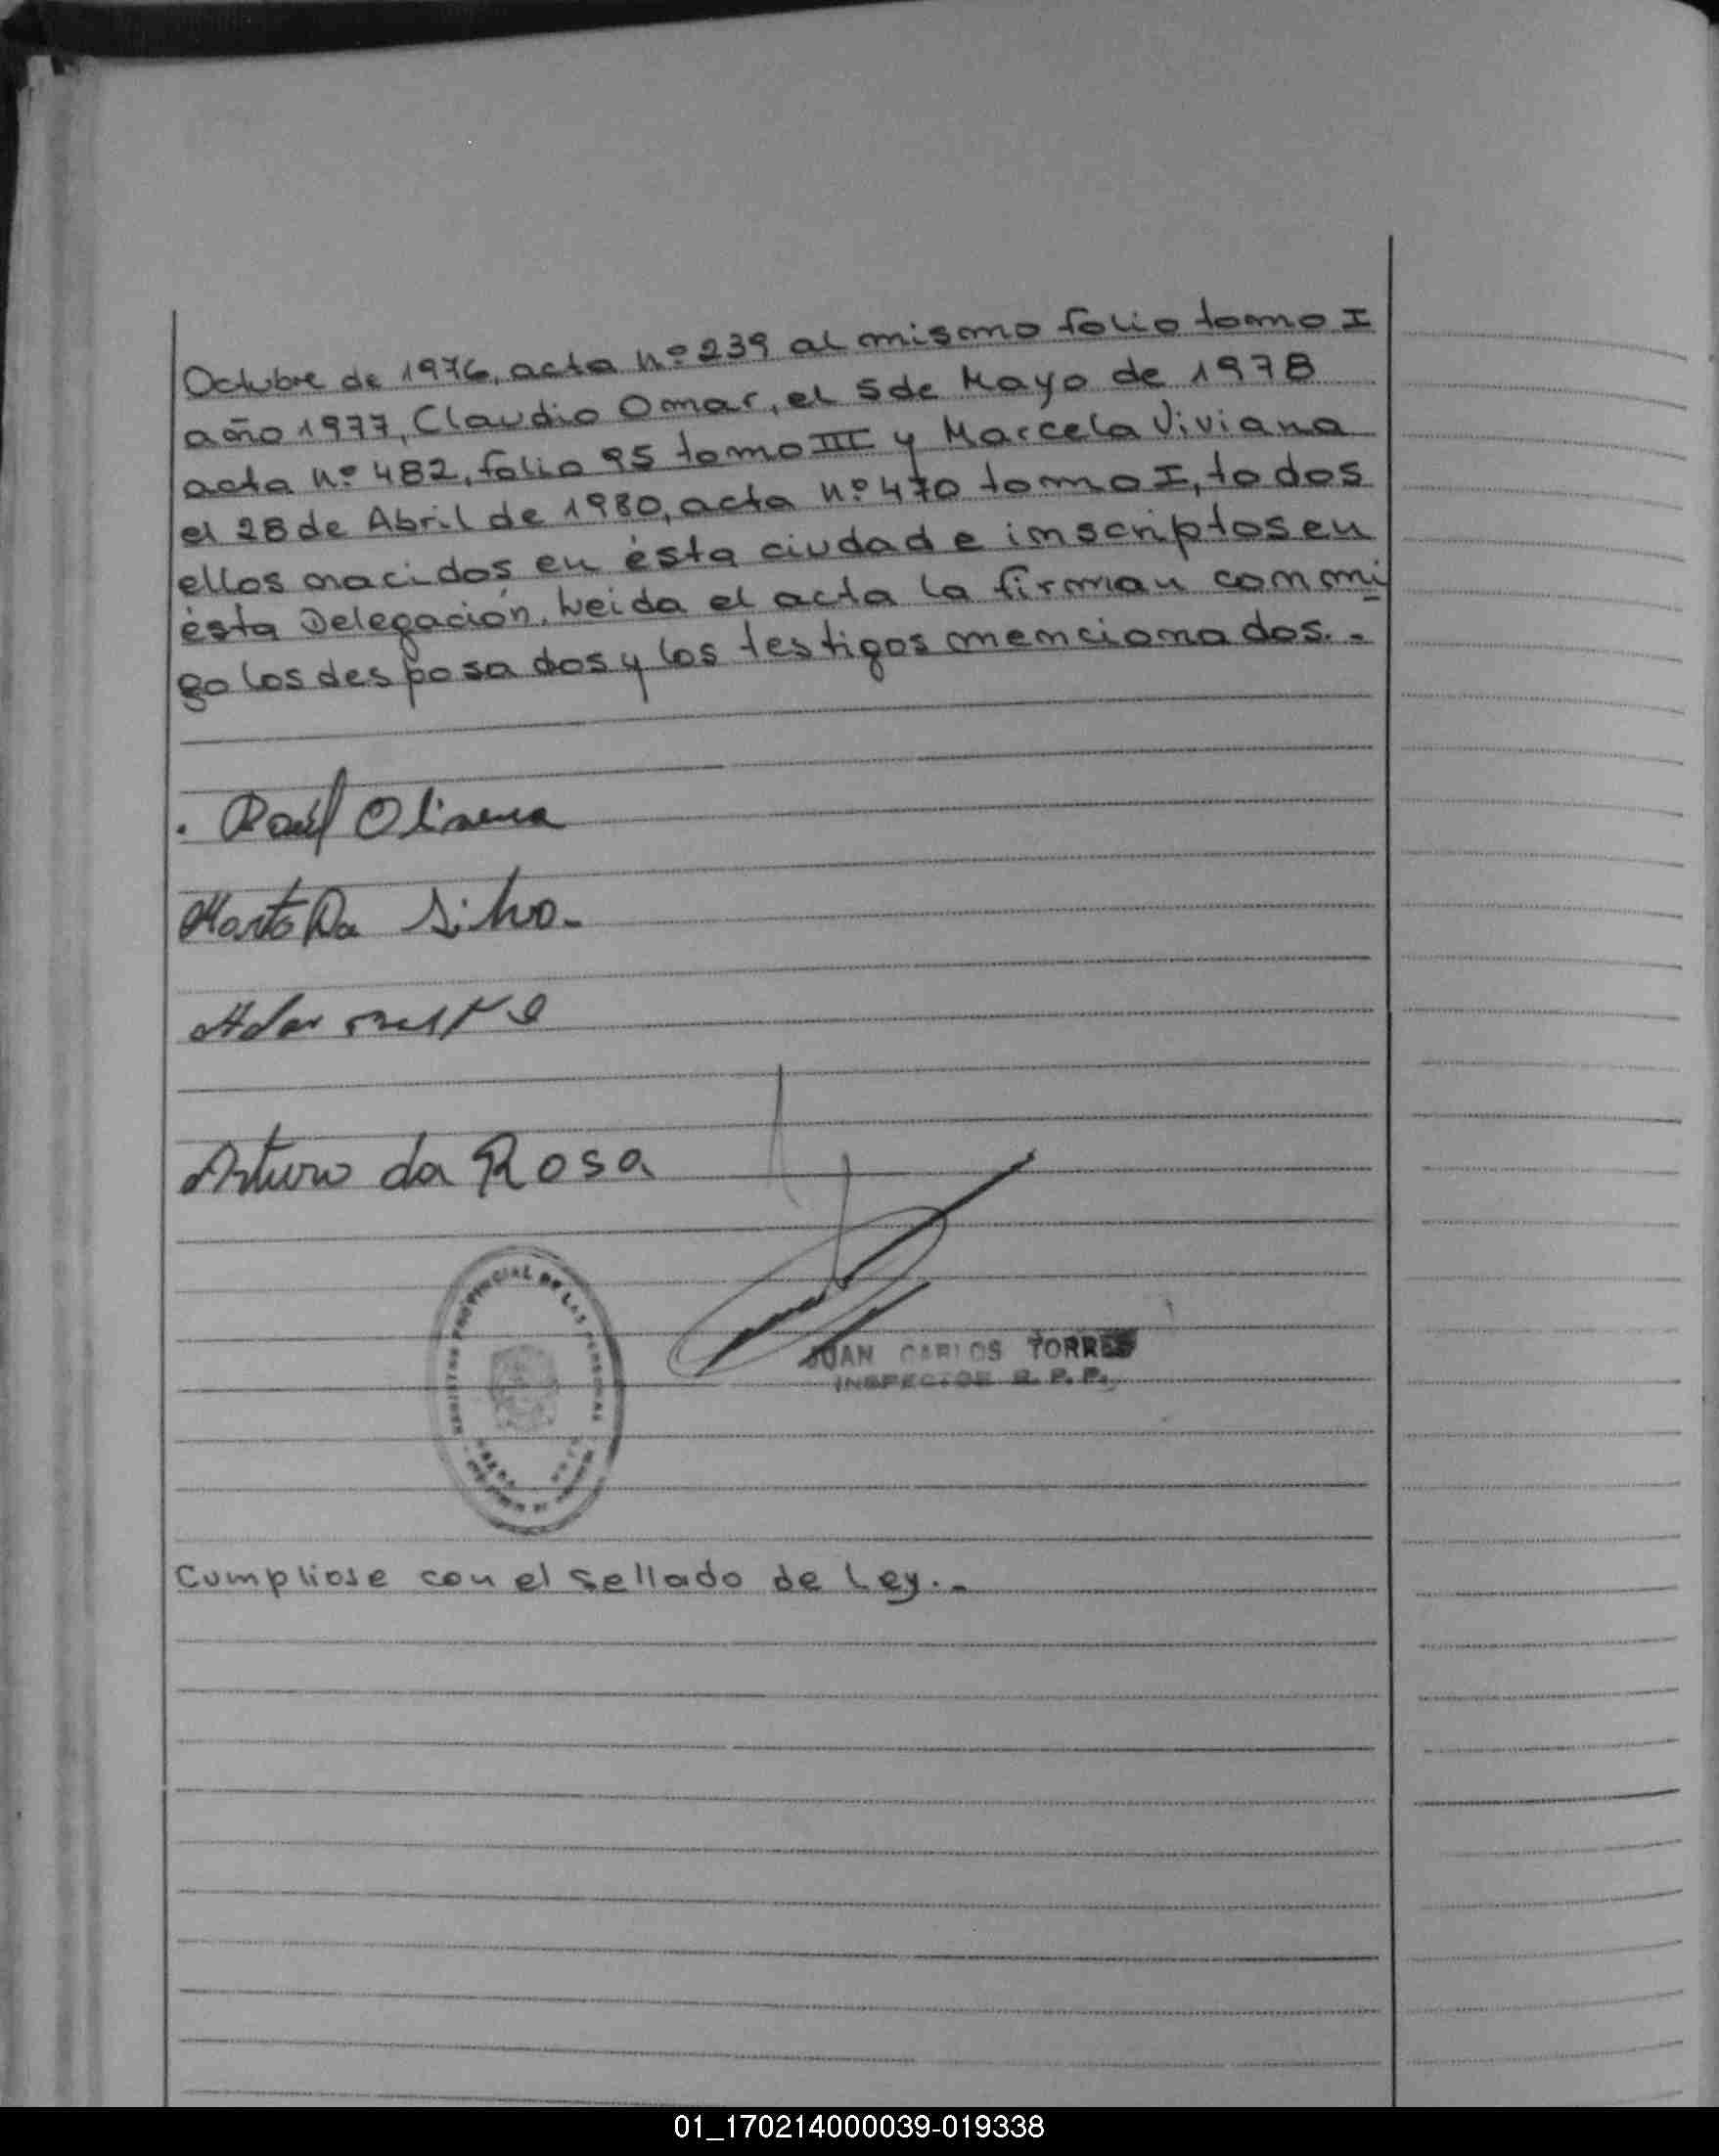 Octubre de 1976, acta nº 239 al mismo folio tomo I
año 1977, Claudio Omar, el 5 de Mayo de 1978
acta nº 482, folio 95 tomo III y Marcela Viviana
el 28 de Abril de 1980, acta nº 470 tomo I, todos
ellos nacidos en ésta ciudad e inscriptos en
ésta Delegación. Leida el acta la firman conmi
go los desposados y los testigos mencionados.-
Raúl Olivera
Marta Da Silva.
Arturo da Rosa
REGISTRO PROVINCIAL DE LAS PERSONAS
JUAN CARLOS TORRES
INSPECTOR R. P. P.
Cumpliose con el sellado de Ley.-
01_170214000039-019338